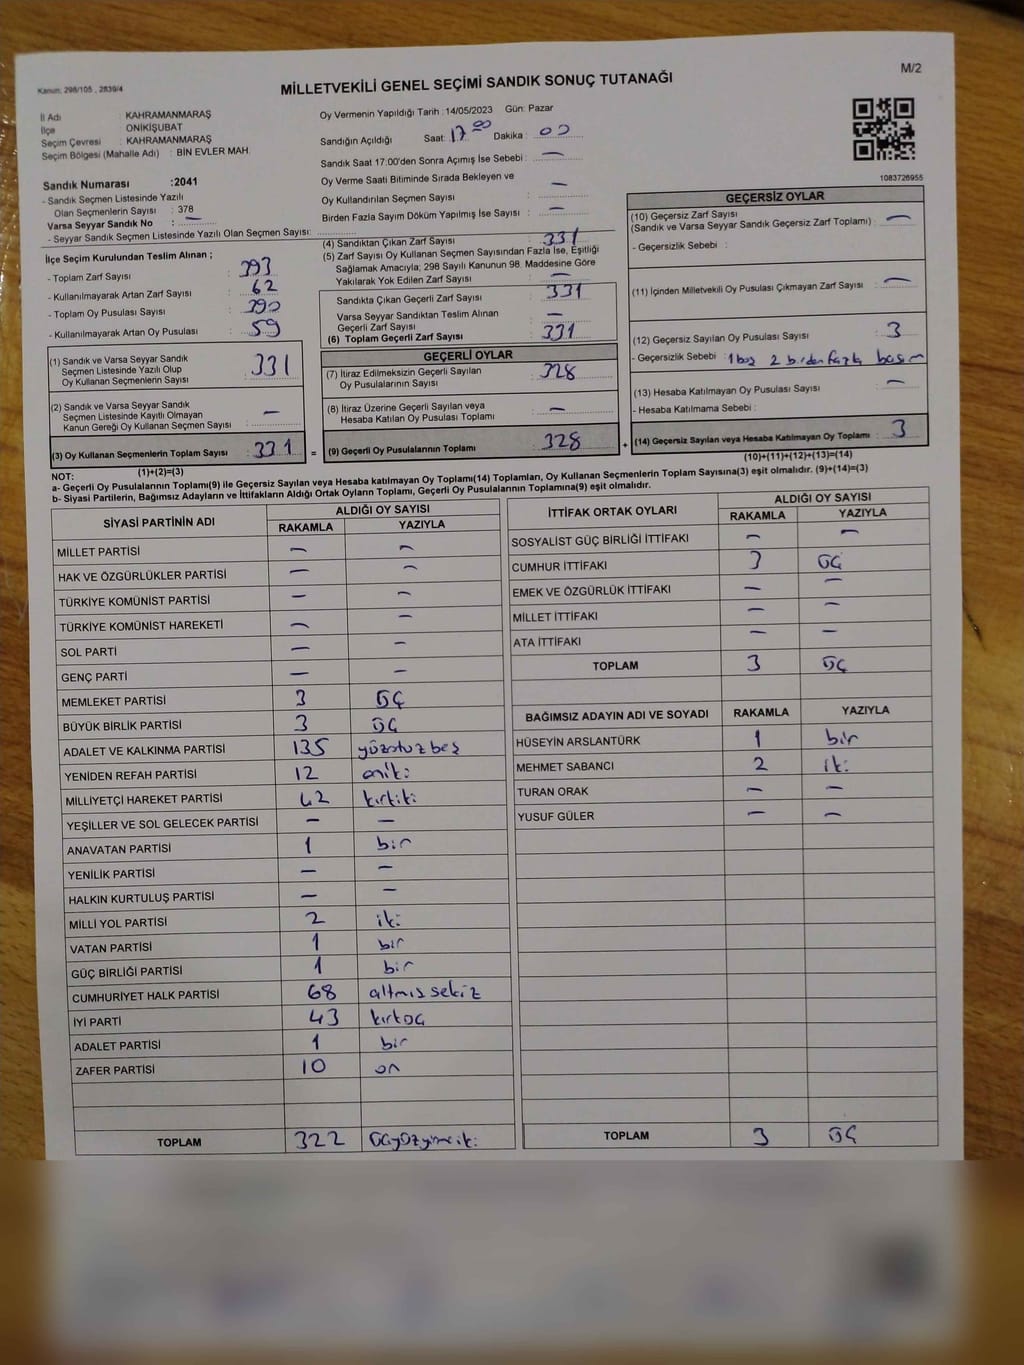 M/2
Kanun: 298/105 , 2839/4
MİLLETVEKİLİ GENEL SEÇİMİ SANDIK SONUÇ TUTANAĞI
İl Adı : KAHRAMANMARAŞ
İlçe : ONİKİŞUBAT
Seçim Çevresi : KAHRAMANMARAŞ
Seçim Bölgesi (Mahalle Adı) : BİN EVLER MAH.
Sandık Numarası :2041
- Sandık Seçmen Listesinde Yazılı
Olan Seçmenlerin Sayısı : 378
Varsa Seyyar Sandık No : —
- Seyyar Sandık Seçmen Listesinde Yazılı Olan Seçmen Sayısı:
Oy Vermenin Yapıldığı Tarih : 14/05/2023 Gün: Pazar
Sandığın Açıldığı Saat: 17 00 Dakika : 00
Sandık Saat 17:00'den Sonra Açımış İse Sebebi : —
Oy Verme Saati Bitiminde Sırada Bekleyen ve
Oy Kullandırılan Seçmen Sayısı : —
Birden Fazla Sayım Döküm Yapılmış İse Sayısı : —
1083726955
İlçe Seçim Kurulundan Teslim Alınan ;
- Toplam Zarf Sayısı : 393
- Kullanılmayarak Artan Zarf Sayısı : 62
- Toplam Oy Pusulası Sayısı : 390
- Kullanılmayarak Artan Oy Pusulası : 59
(1) Sandık ve Varsa Seyyar Sandık
Seçmen Listesinde Yazılı Olup
Oy Kullanan Seçmenlerin Sayısı : 331
(2) Sandık ve Varsa Seyyar Sandık
Seçmen Listesinde Kayıtlı Olmayan
Kanun Gereği Oy Kullanan Seçmen Sayısı : —
(3) Oy Kullanan Seçmenlerin Toplam Sayısı : 331
(1)+(2)=(3)
(4) Sandıktan Çıkan Zarf Sayısı : 331
(5) Zarf Sayısı Oy Kullanan Seçmen Sayısından Fazla İse, Eşitliği
Sağlamak Amacıyla; 298 Sayılı Kanunun 98. Maddesine Göre
Yakılarak Yok Edilen Zarf Sayısı : —
Sandıkta Çıkan Geçerli Zarf Sayısı : 331
Varsa Seyyar Sandıktan Teslim Alınan
Geçerli Zarf Sayısı : —
(6) Toplam Geçerli Zarf Sayısı : 331
GEÇERLİ OYLAR
(7) İtiraz Edilmeksizin Geçerli Sayılan
Oy Pusulalarının Sayısı : 328
(8) İtiraz Üzerine Geçerli Sayılan veya
Hesaba Katılan Oy Pusulası Toplamı : —
= (9) Geçerli Oy Pusulalarının Toplamı : 328 +
GEÇERSİZ OYLAR
(10) Geçersiz Zarf Sayısı
(Sandık ve Varsa Seyyar Sandık Geçersiz Zarf Toplamı) : —
- Geçersizlik Sebebi :
(11) İçinden Milletvekili Oy Pusulası Çıkmayan Zarf Sayısı : —
(12) Geçersiz Sayılan Oy Pusulası Sayısı : 3
- Geçersizlik Sebebi : 1 boş 2 birden fazla basım
(13) Hesaba Katılmayan Oy Pusulası Sayısı : —
- Hesaba Katılmama Sebebi :
(14) Geçersiz Sayılan veya Hesaba Katılmayan Oy Toplamı : 3
(10)+(11)+(12)+(13)=(14)
NOT:
a- Geçerli Oy Pusulasının Toplamı(9) ile Geçersiz Sayılan veya Hesaba katılmayan Oy Toplamı(14) Toplamları, Oy Kullanan Seçmenlerin Toplam Sayısına(3) eşit olmalıdır. (9)+(14)=(3)
b- Siyasi Partilerin, Bağımsız Adayların ve İttifakların Aldığı Ortak Oyların Toplamı, Geçerli Oy Pusulalarının Toplamına(9) eşit olmalıdır.
SİYASİ PARTİNİN ADI ALDIĞI OY SAYISI
RAKAMLA YAZIYLA
MİLLET PARTİSİ — —
HAK VE ÖZGÜRLÜKLER PARTİSİ — —
TÜRKİYE KOMÜNİST PARTİSİ — —
TÜRKİYE KOMÜNİST HAREKETİ — —
SOL PARTİ — —
GENÇ PARTİ — —
MEMLEKET PARTİSİ 3 üç
BÜYÜK BİRLİK PARTİSİ 3 üç
ADALET VE KALKINMA PARTİSİ 135 yüzotuzbeş
YENİDEN REFAH PARTİSİ 12 oniki
MİLLİYETÇİ HAREKET PARTİSİ 42 kırkiki
YEŞİLLER VE SOL GELECEK PARTİSİ — —
ANAVATAN PARTİSİ 1 bir
YENİLİK PARTİSİ — —
HALKIN KURTULUŞ PARTİSİ — —
MİLLİ YOL PARTİSİ 2 iki
VATAN PARTİSİ 1 bir
GÜÇ BİRLİĞİ PARTİSİ 1 bir
CUMHURİYET HALK PARTİSİ 68 altmışsekiz
İYİ PARTİ 43 kırküç
ADALET PARTİSİ 1 bir
ZAFER PARTİSİ 10 on
TOPLAM 322 üçyüzyirmiiki
İTTİFAK ORTAK OYLARI ALDIĞI OY SAYISI
RAKAMLA YAZIYLA
SOSYALİST GÜÇ BİRLİĞİ İTTİFAKI — —
CUMHUR İTTİFAKI 3 üç
EMEK VE ÖZGÜRLÜK İTTİFAKI — —
MİLLET İTTİFAKI — —
ATA İTTİFAKI — —
TOPLAM 3 üç
BAĞIMSIZ ADAYIN ADI VE SOYADI RAKAMLA YAZIYLA
HÜSEYİN ARSLANTÜRK 1 bir
MEHMET SABANCI 2 iki
TURAN ORAK — —
YUSUF GÜLER — —
TOPLAM 3 üç